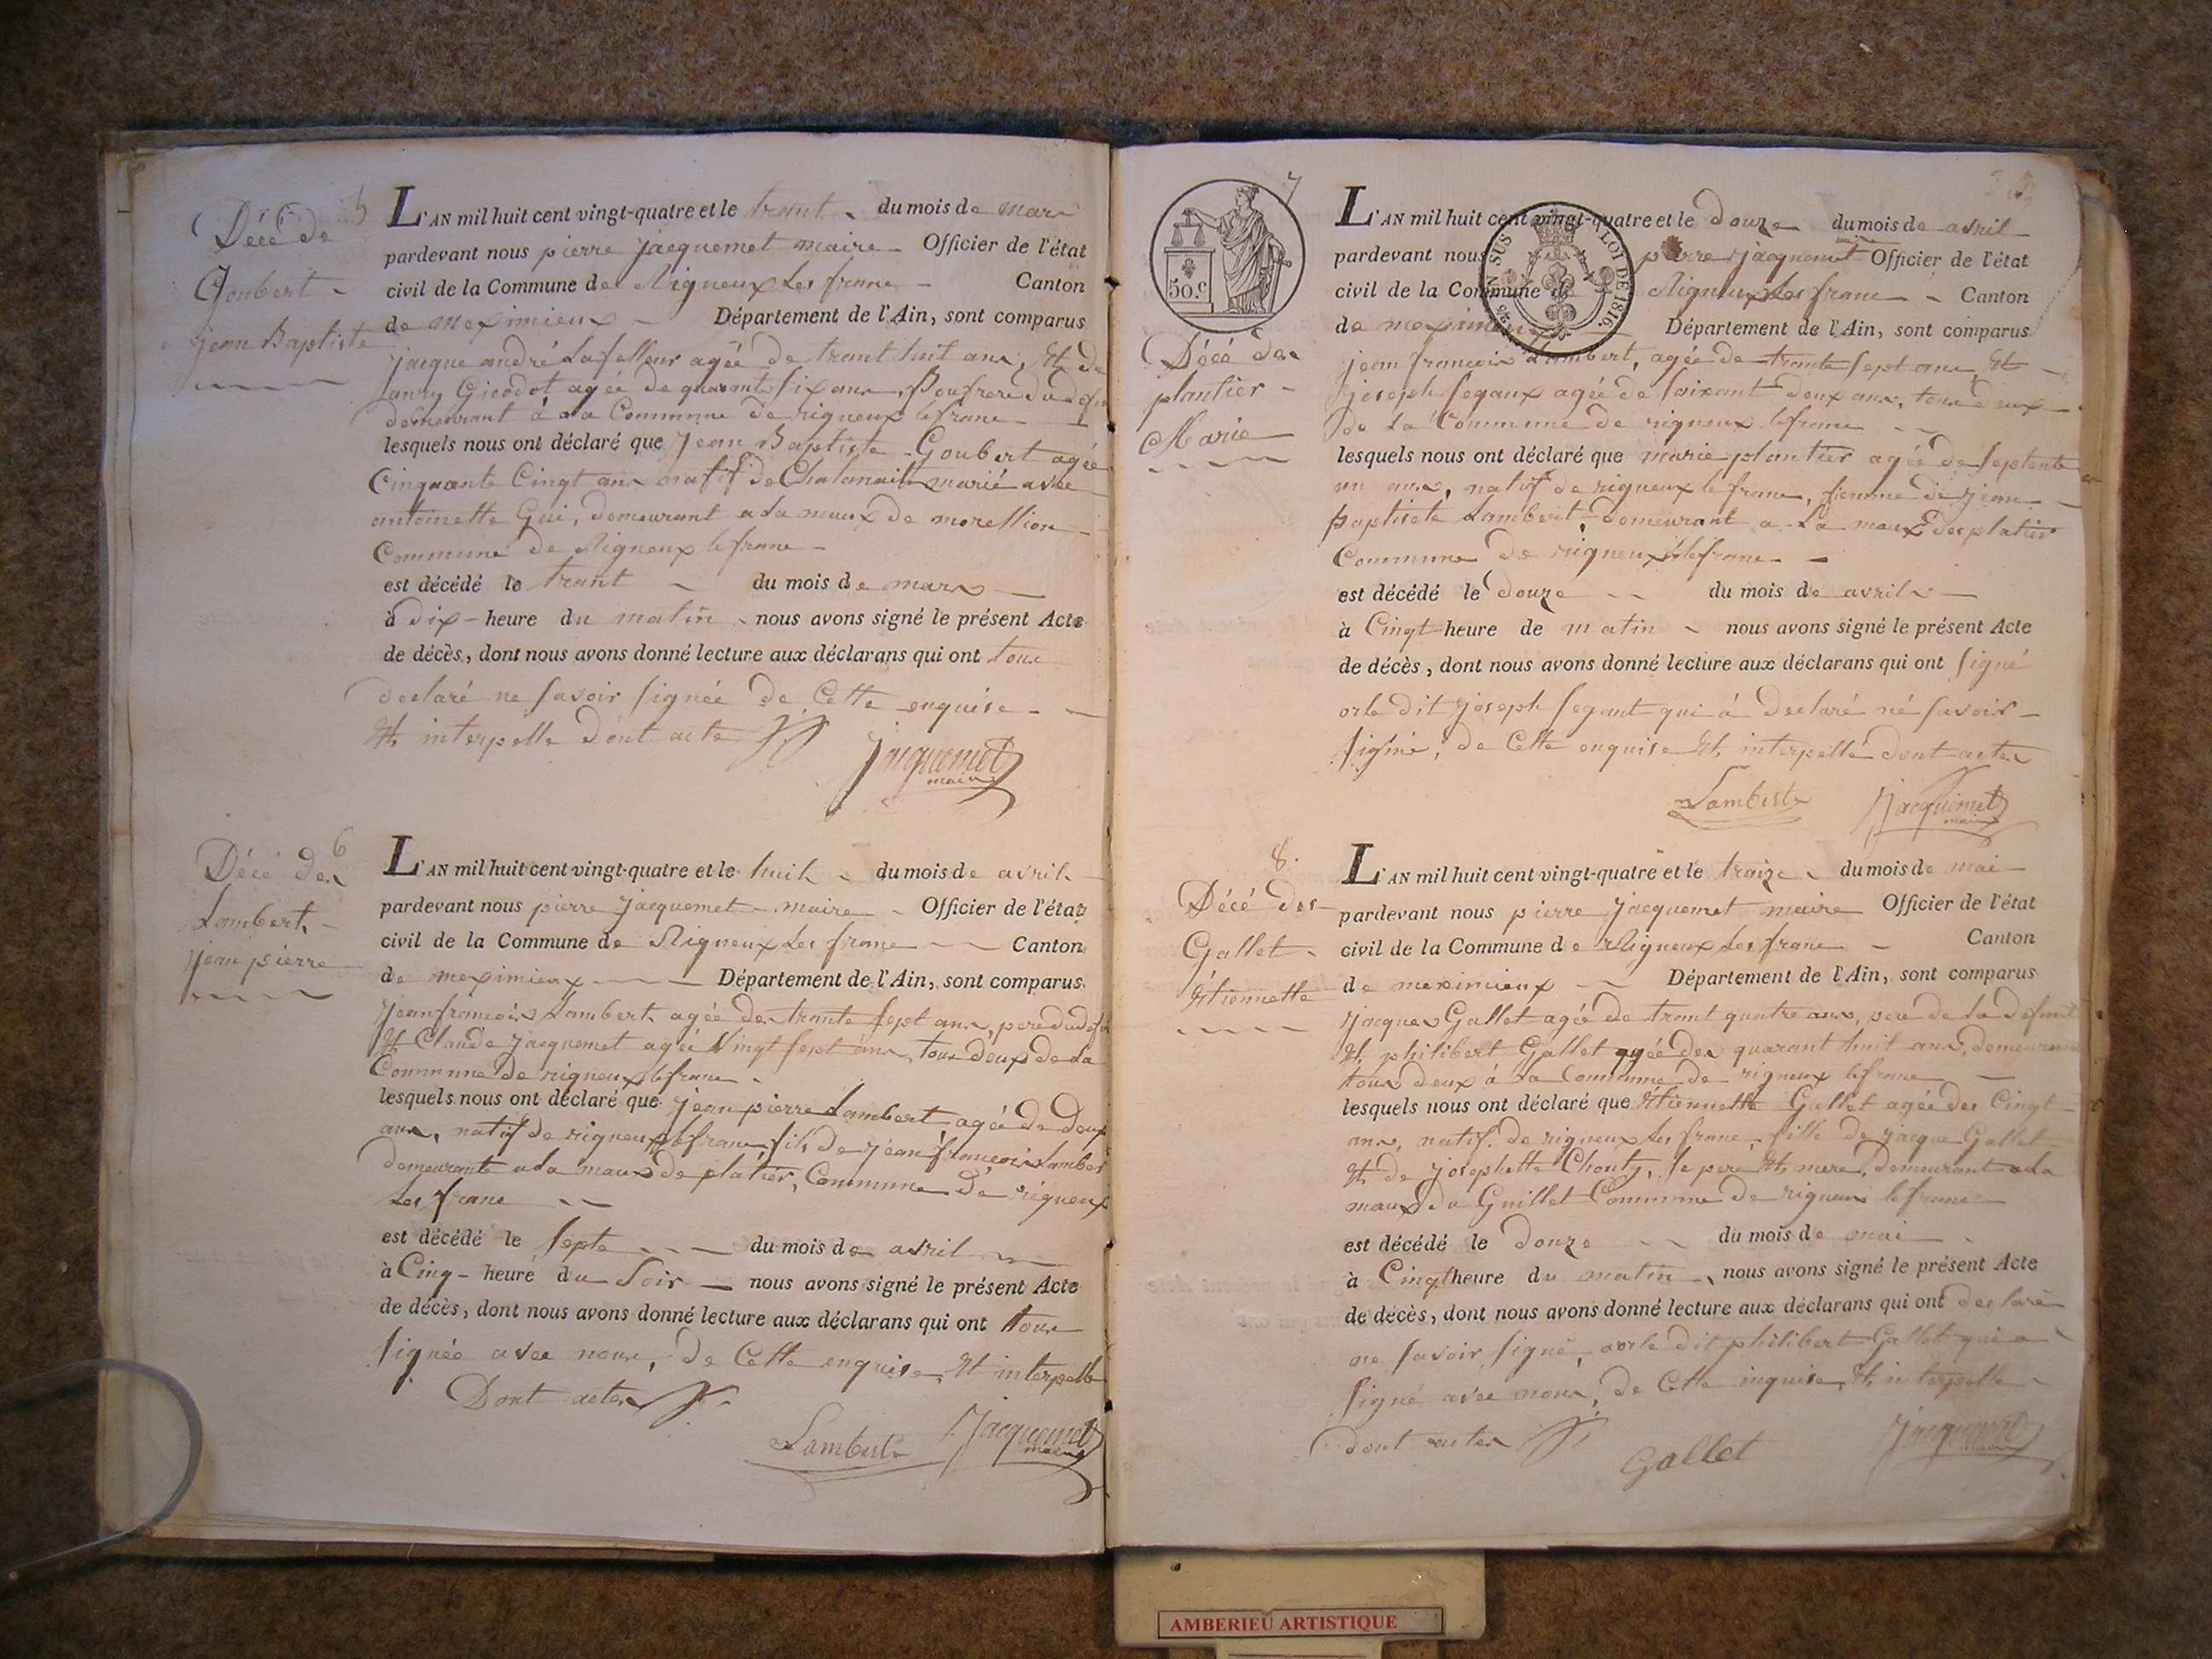 5
Décé de
Goubert
jean Baptiste
L'AN mil huit cent vingt-quatre et le trant du mois de mars
pardevant nous pierre jacquemet maire Officier de l'état
civil de la Commune de Rigneux Les franc Canton
de meximieux Département de l'Ain, sont comparus
jacque andré agée de trant huit ans, Et de
agée de quarant six ans Boufrere du
demeurant à La Commune de rigneux lefranc
lesquels nous ont déclaré que jean Baptiste Goubert agée
Cinquante Cingt ans natif de marié avec
antoinette Gui, demeurant a La maux de morellion
Commune de Rigneux lefranc
est décédé le trant du mois de mars
à dix heure du matin nous avons signé le présent Acte
de décès, dont nous avons donné lecture aux déclarans qui ont tous
declaré ne savoir signée de Cette enquise
Et interpelle dont acte
jacquemet
maire
6
Décé de
Lambert
jean pierre
L'AN mil huit cent vingt-quatre et le huit du mois de avril
pardevant nous pierre jacquemet maire Officier de l'état
civil de la Commune de Rigneux Les franc Canton
de meximieux Département de l'Ain, sont comparus
jeanfrancois Lambert agée de trante sept ans, pere dudef
Et Claude jacquemet agée Vingt sept ans, tous deux de La
Commune de rigneux lefranc
lesquels nous ont déclaré que jean pierre Lambert agée de deux
ans, natif de rigneux lefranc, fils de jean francois Lamber
demeurante a La maux de platier, Commune de rigneux
Les franc
est décédé le septe du mois de avril
à Cinq heure du Soir nous avons signé le présent Acte
de décès, dont nous avons donné lecture aux déclarans qui ont tous
signée avec nous, de Cette enquise, Et interpelle
Dont acte
Lambert jacquemet
maire
7
50.c
EN SUS
LOI DE 1816
Décé de
plantier
Marie
L'AN mil huit cent vingt-quatre et le douze du mois de avril
pardevant nous pierre jacquemet maire Officier de l'état
civil de la Commune de Rigneux Les franc Canton
de meximieux Département de l'Ain, sont comparus
jean francois Lambert, agée de trante sept ans, Et
joseph segaux agée de soixant deux ans, tous deux
de La Commune de rigneux lefranc
lesquels nous ont déclaré que marie plantier agée de septente
un ans, natif de rigneux le franc, femme de jean
baptiste Lambert, demeurant a La maux des platier
Commune de rigneux lefranc
est décédé le douze du mois de avril
à Cingt heure de matin nous avons signé le présent Acte
de décès, dont nous avons donné lecture aux déclarans qui ont signé
orle dit joseph segaut qui à declaré né savoir
signé, de Cette enquise Et interpellé dont acte
Lambert jacquemet
maire
8.
Décé de
Gallet
Etiennette
L'AN mil huit cent vingt-quatre et le traize du mois de mai
pardevant nous pierre jacquemet maire Officier de l'état
civil de la Commune de Rigneux Les franc Canton
de meximieux Département de l'Ain, sont comparus
jacques Gallet agée de trant quatre ans, pere de La defunt
Et philibert Gallet agée de quarant huit ans, demeurant
tous deux à La Commune de rigneux lefranc
lesquels nous ont déclaré que Etiennette Gallet agée de Cingt
ans, natif de rigneux Les franc, fille de jacque Gallet
Et de josephette Chouty, le pere Et mere, demeurant a La
maux du Guillet Commune de rigneux lefranc
est décédé le douze du mois de mai
à Cingt heure du matin nous avons signé le présent Acte
de décès, dont nous avons donné lecture aux déclarans qui ont declaré
ne savoir signé, orle dit philibert Gallet qui a
signé avec nous, de Cette inquise, Et interpelle
dont acte
Gallet jacquemet
maire
AMBERIEU ARTISTIQUE